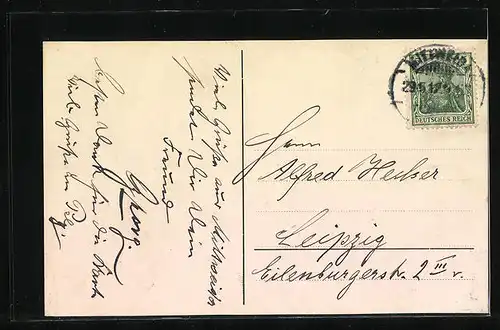 Viele Grüße aus Mittweida
sendet Dir Dein
Freund
Georg.
Besten Dank für die Karte
Viele Grüße an
DEUTSCHES REICH
Herrn
Alfred Hecker
Leipzig
Eilenburgerstr. 2 III r.